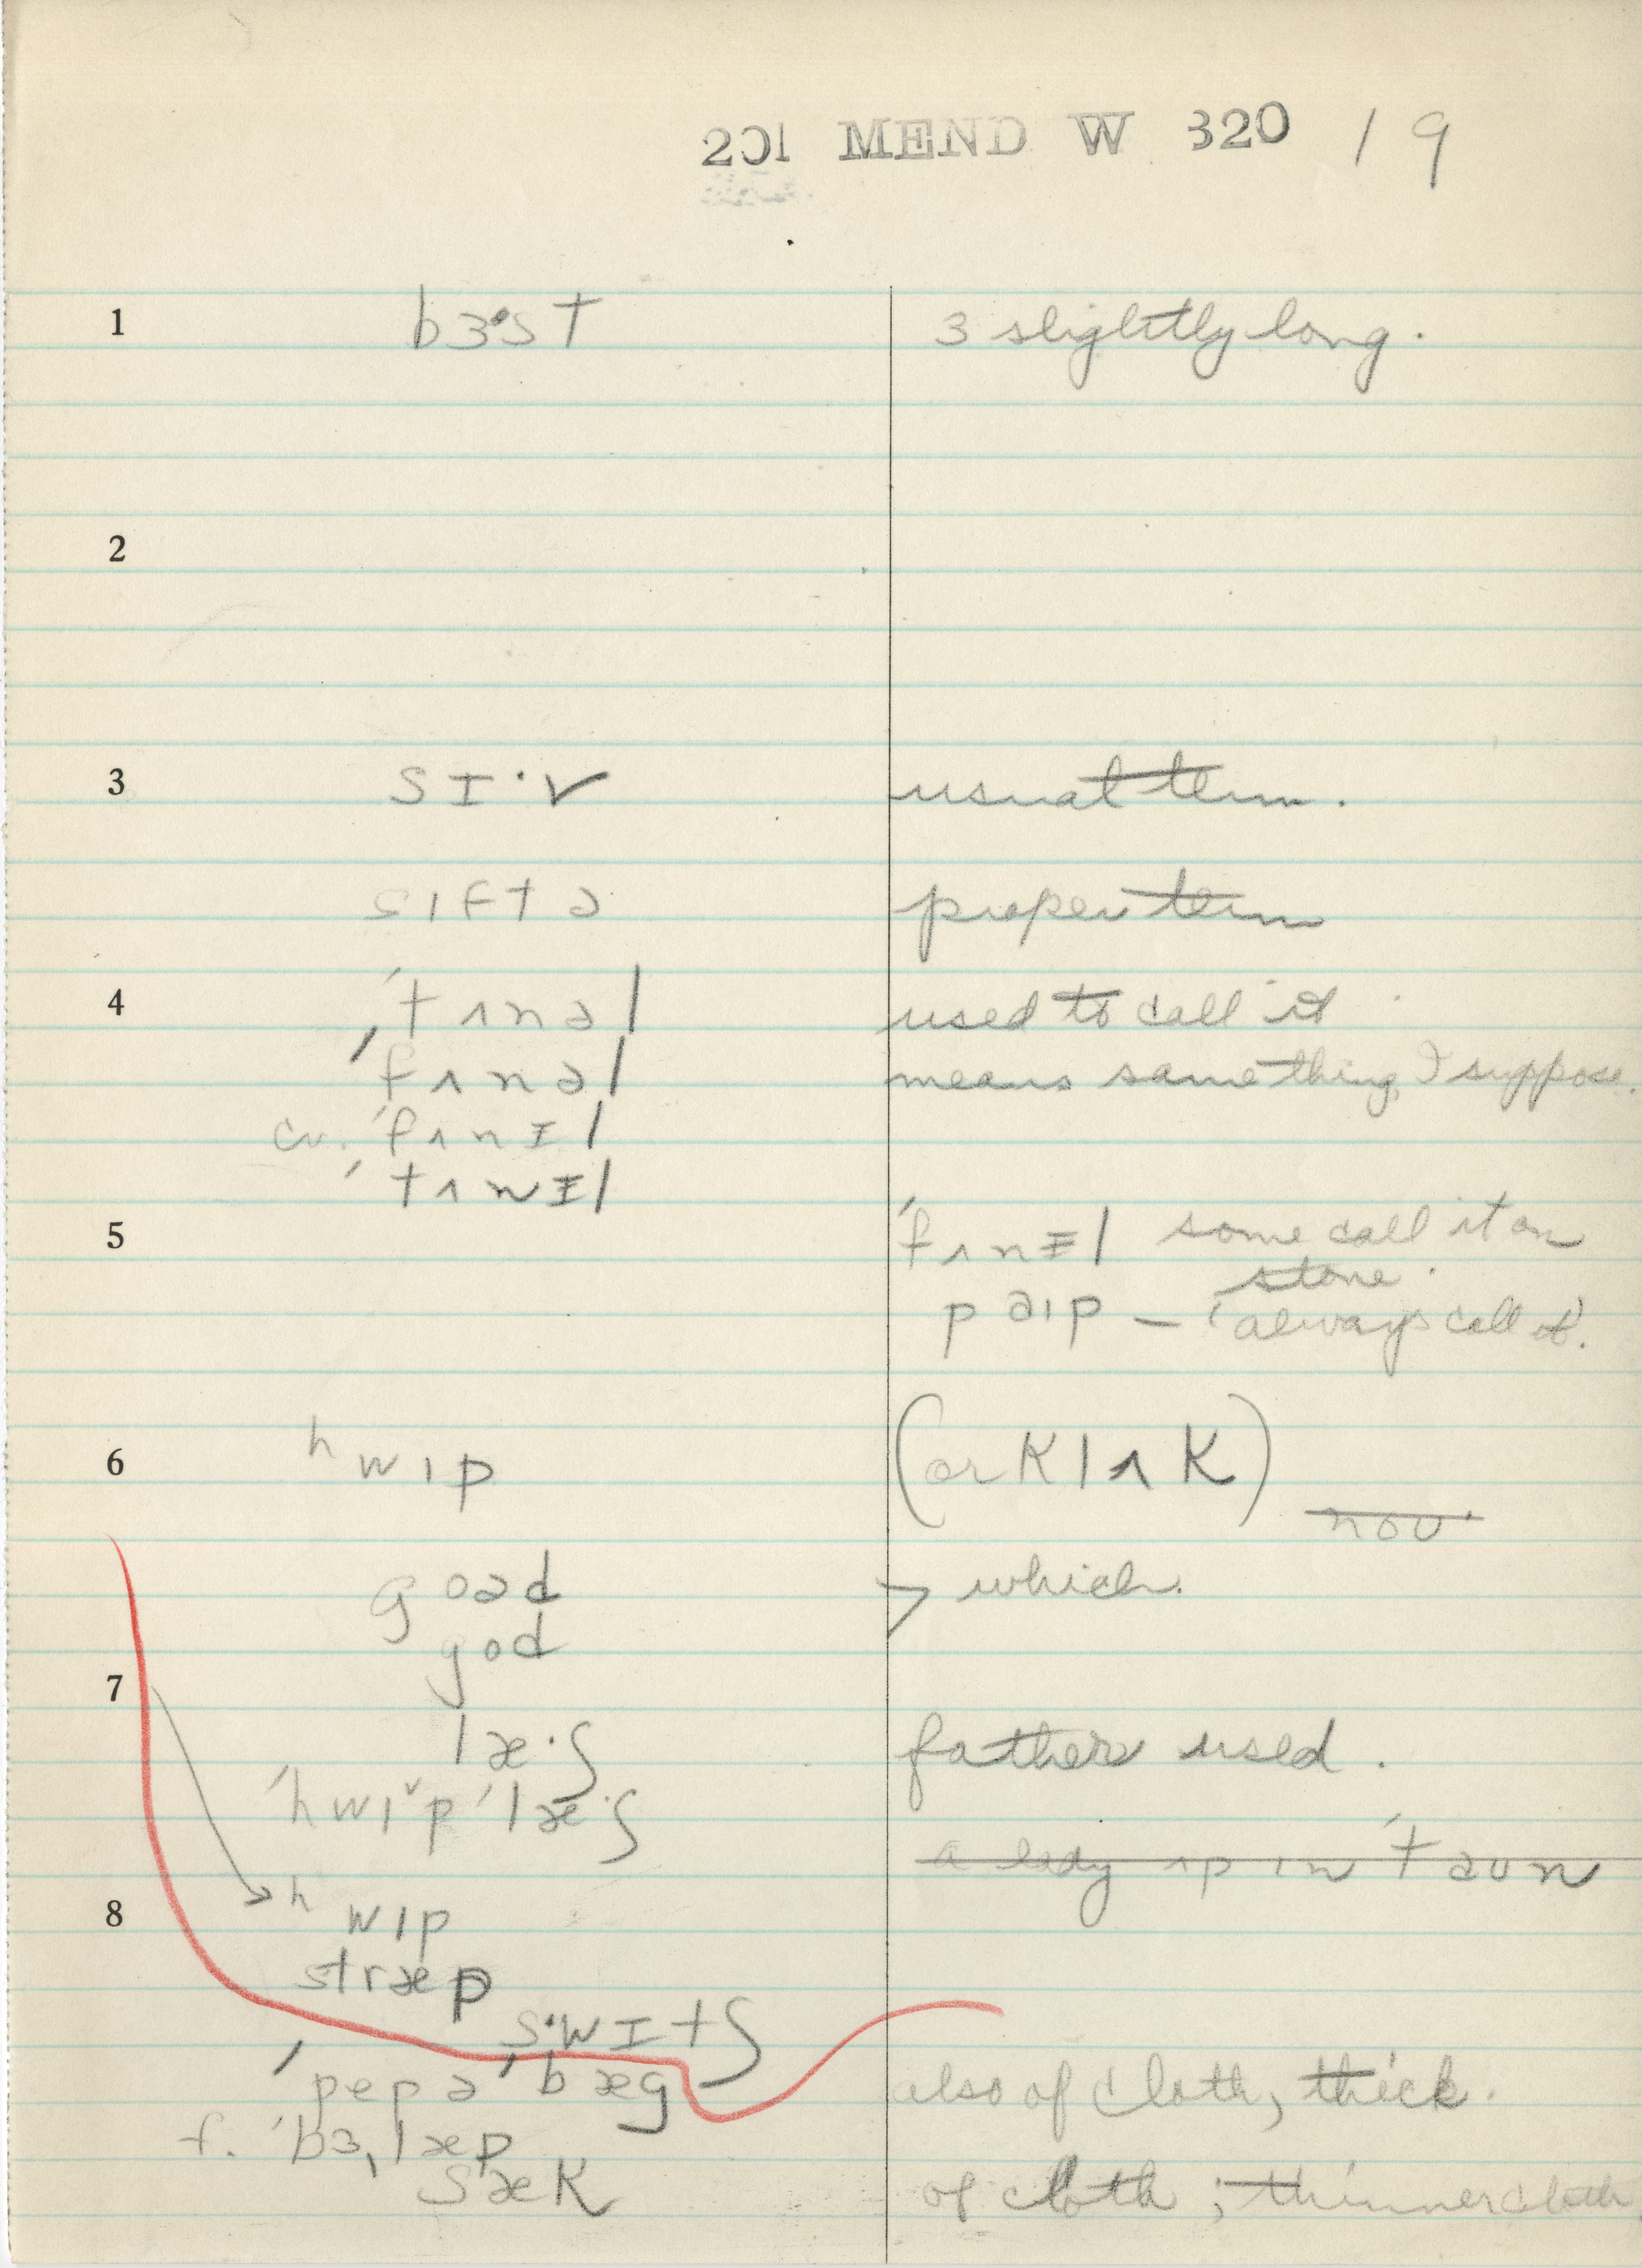 201 MEND W 320 19
1 bɜ·sT ɜ slightly long.
2
3 sI·v usual term.
sıftə proper term
4 ˈtʌnəl used to call it
ˈfʌnəl means same thing, I suppose.
cv. ˈfʌnɪl
ˈtʌnɪl
5 ˈfʌnɪl some call it on
stove.
paıp – always call it.
6 ʰwıp (or klʌk)
nou·
goəd > which.
god
7
læ·ʃ father used.
ˈhwı˅pˈlæ·ʃ
a lady ʌp ın ˈtaun
8 ʰwıp
stræp
s·wɪtʃ
ˈpepəˈbæg also of cloth, thick.
f. ˈbɜˌlæp
sæk of cloth; thinner cloth